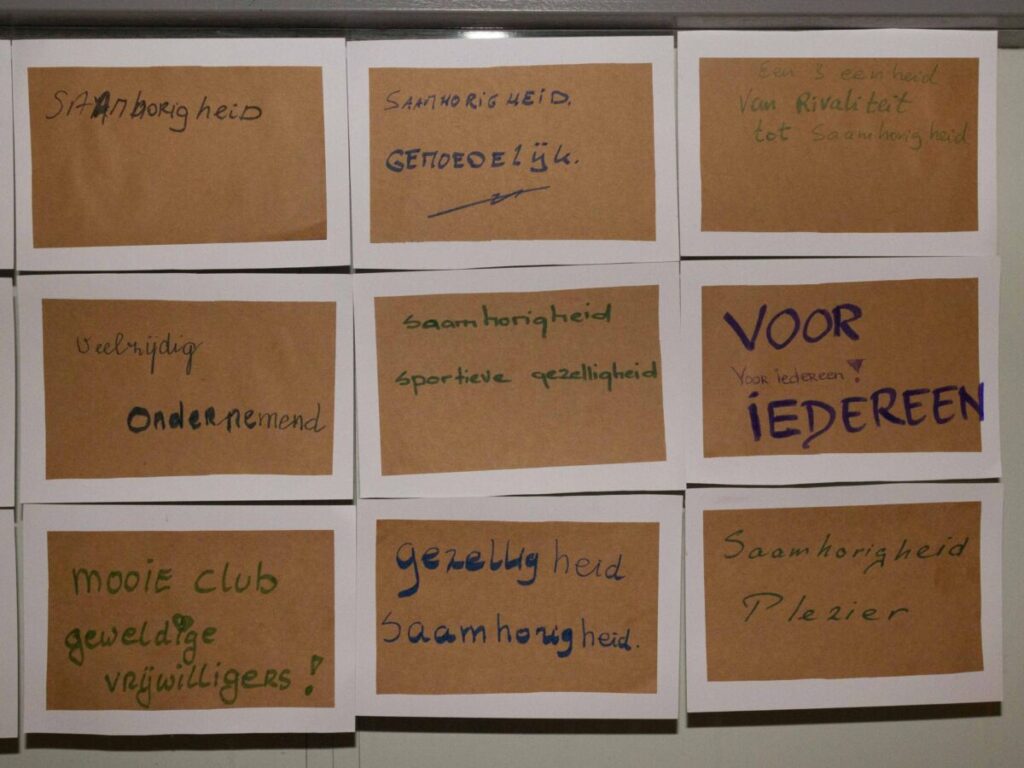 SAAMhorigheid
SAAMHORIGHEID.
GEMOEDELIJK.
Een 3 eenheid
Van Rivaliteit
tot Saamhorigheid
Veelzijdig
Ondernemend
saamhorigheid
sportieve gezelligheid
VOOR
Voor iedereen!
IEDEREEN
MOOIE CLUB
geweldige
vrijwilligers!
gezelligheid
Saamhorigheid.
Saamhorigheid
Plezier